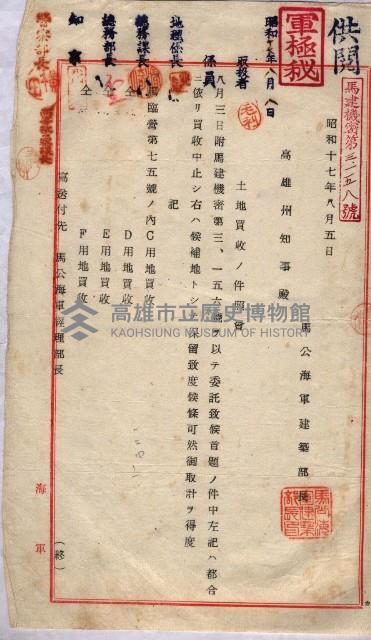 供閲
軍極秘
馬建機密第三、一五八號
昭和十七年八月五日
馬公海軍建築部長
高雄州知事殿
土地買收ノ件照會
八月三日附馬建機密第三、一五六號ヲ以テ委託致候首題ノ件中左記ハ都合
ニ依リ買收中止シ右ハ候補地トシテ保留致度候條可然御取計ヲ得度
記
馬臨營第七五號ノ内C用地買收
仝 D用地買收
仝 E用地買收
仝 F用地買收
寫送付先 馬公海軍經理部長
(終)
海軍
昭和十七年八月八日
取扱者
係員
地理係長
總務課長
總務部長
知事
警察部長
高雄市立歷史博物館
KAOHSIUNG MUSEUM OF HISTORY